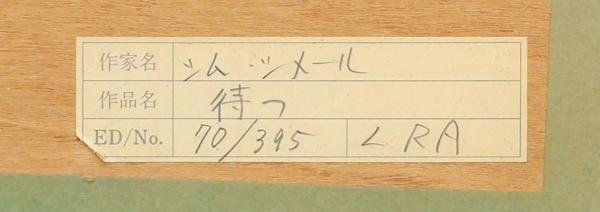 作家名 シム・シメール
作品名 待つ
ED/No. 70/395 L R A